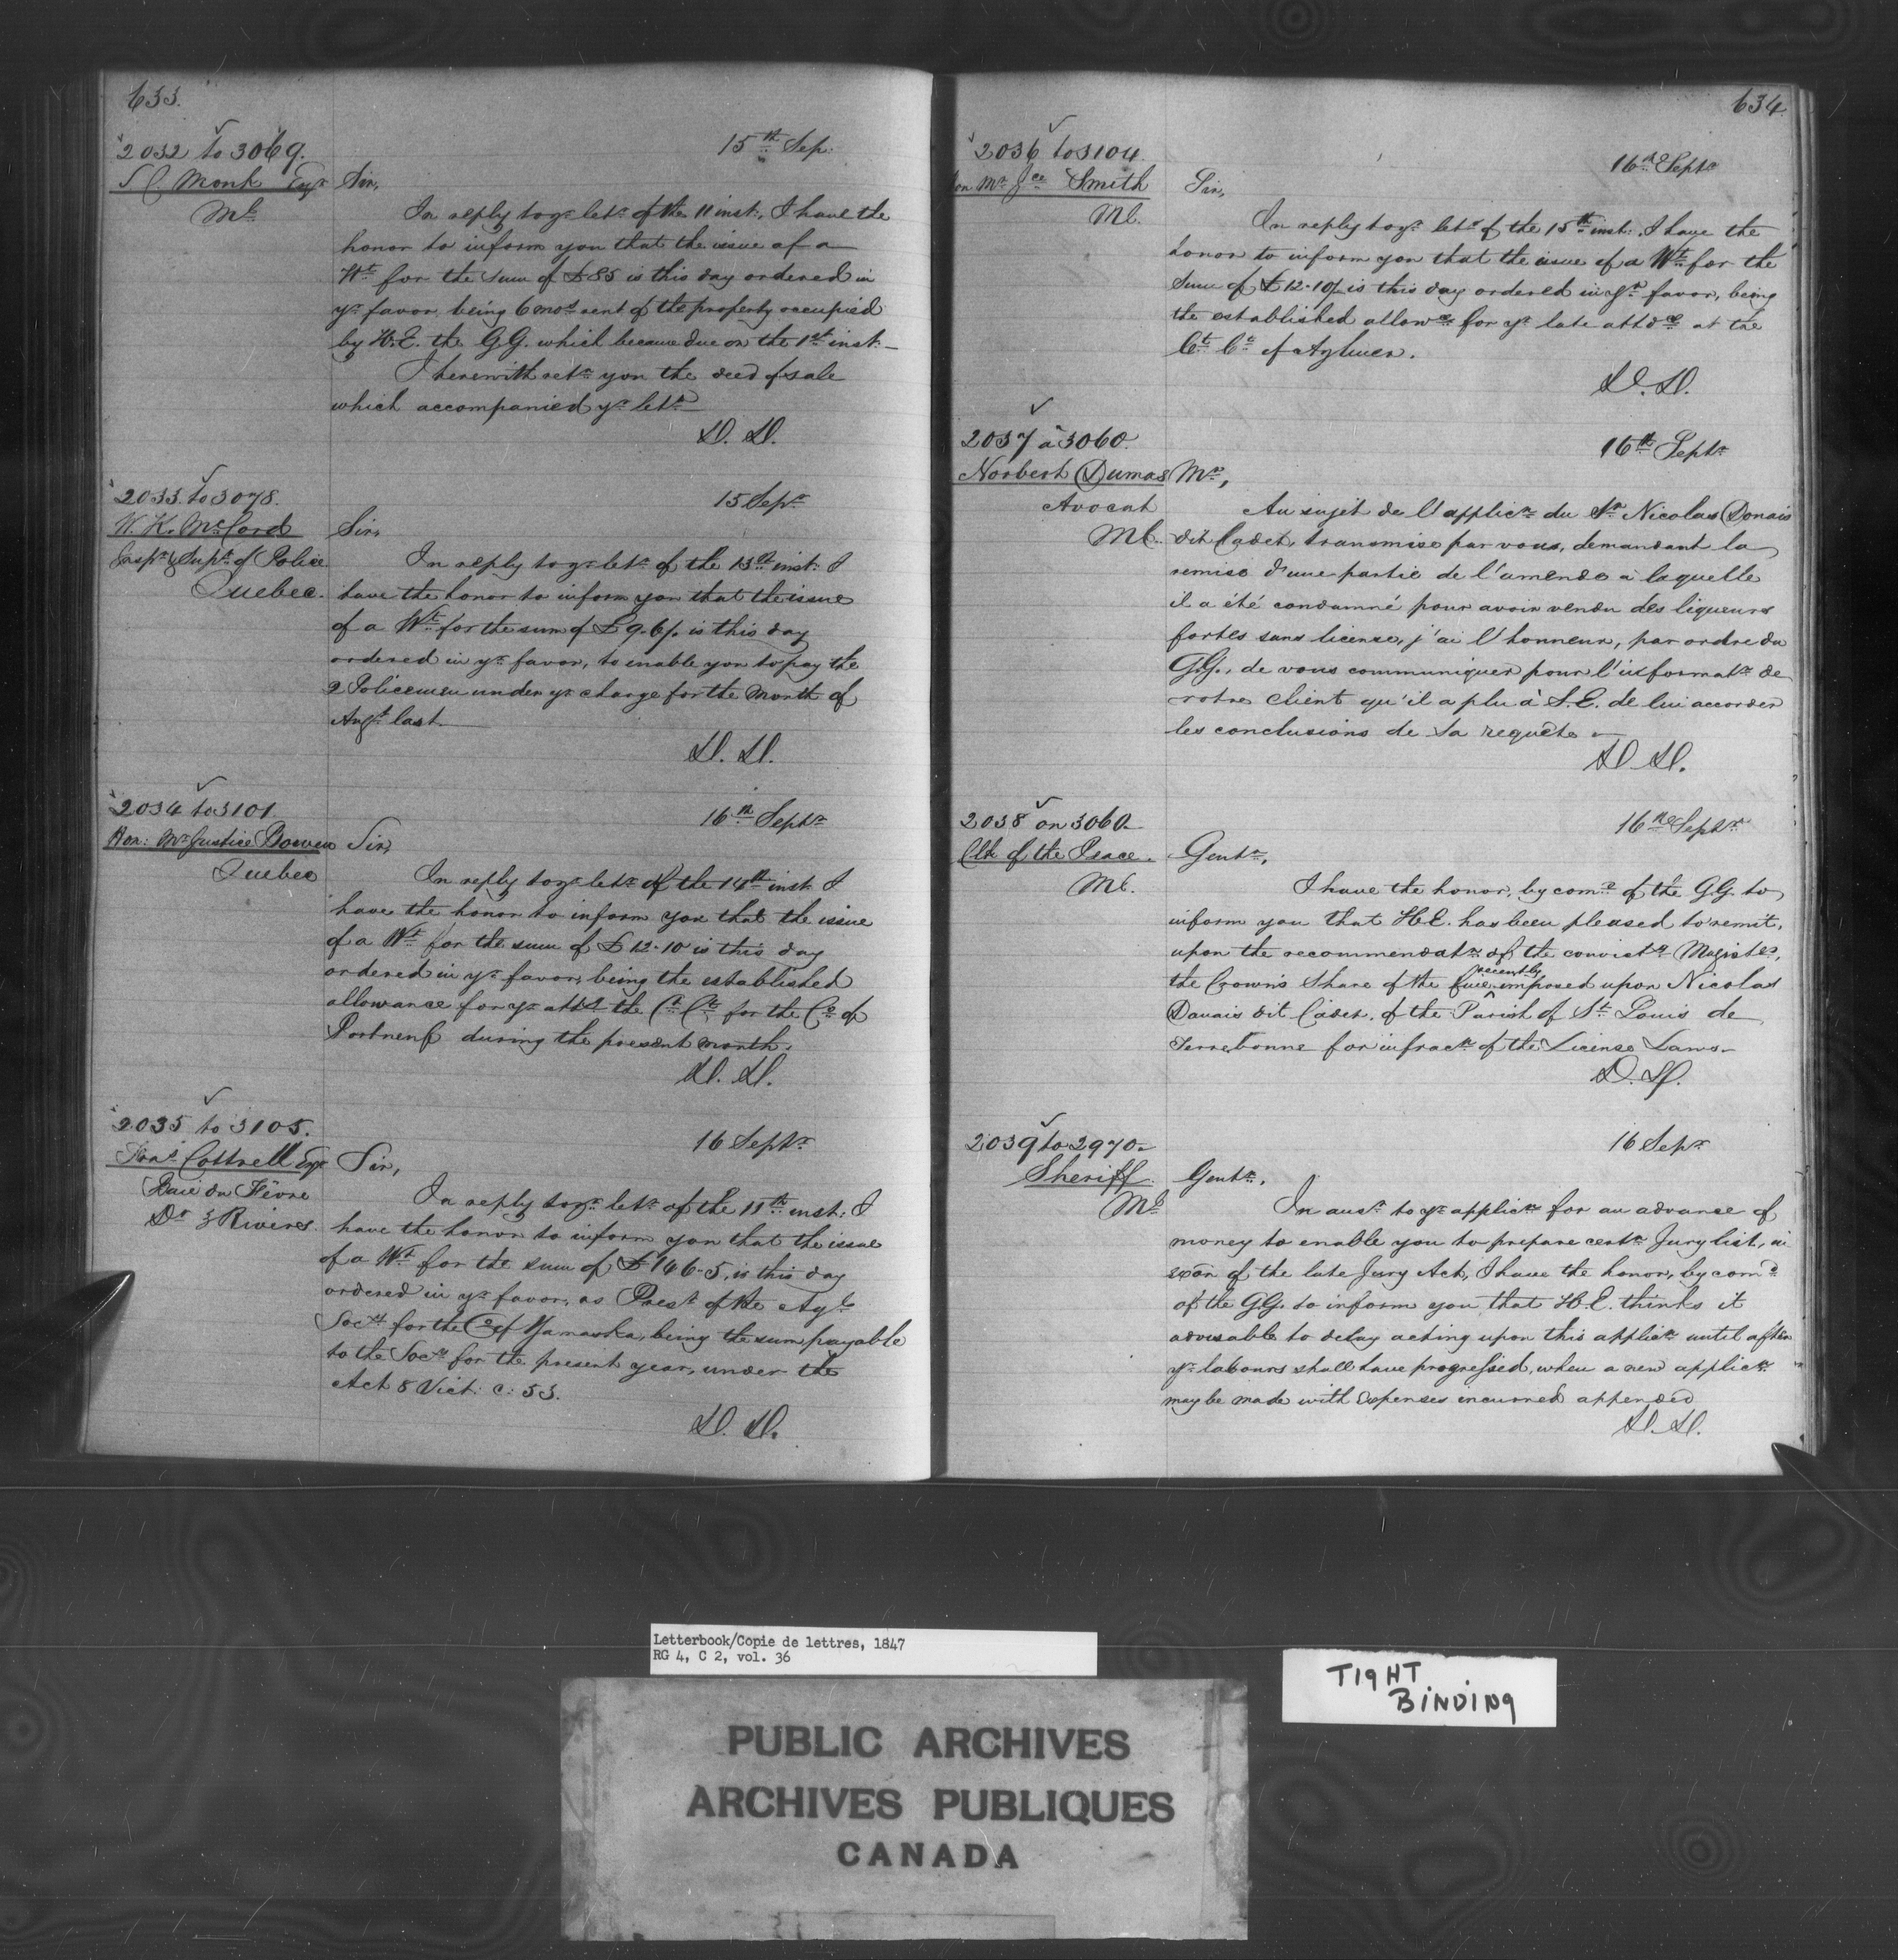 633.
2032 to 3069.
15th Sep.
S. C. Monk Esqr
Ml
Sir,
In reply to yr letr of the 11 inst: I have the
honor to inform you that the issue of a
Wt for the sum of £85 is this day ordered in
yr favor, being 6 mos rent of the property occupied
by H.E. the G.G. which became due on the 1st inst.—
I herewith retn you the deed of sale
which accompanied yr letr
D. D.
2033 to 3078.
15 Sepr
W. K. McCord
Inspr & Supt of Police
Quebec.
Sir,
In reply to yr letr of the 13th inst: I
have the honor to inform you that the issue
of a Wt for the sum of £9.6/. is this day
ordered in yr favor, to enable you to pay the
2 Policemen under yr charge for the month of
Augt last.
D. D.
2034 to 3101
16th Septr
Hon: Mr Justice Bowen
Quebec
Sir,
In reply to yr letr of the 14th inst. I
have the honor to inform you that the issue
of a Wt for the sum of £12.10 is this day
ordered in yr favor, being the established
allowance for yr attdce the Ct Ct for the Co of
Portneuf during the present month.
D. D.
2035 to 3105.
16 Septr
Cottrell Esqr
Baie du Fêvre
Dt 3 Rivieres
Sir,
In reply to yr letr of the 11th inst: I
have the honor to inform you that the issue
of a Wt for the sum of £146.5, is this day
ordered in yr favor, as Prest of the Agl
Socy for the Co of Yamaska, being the sum payable
to the Socy for the present year, under the
Act 8 Vict: c: 53.
D. D.
634
2036 to 3104.
16th Septr
Hon Mr Jce Smith
Ml.
Sir,
In reply to yr letr of the 15th inst: I have the
honor to inform you that the issue of a Wt for the
Sum of £12.10/ is this day ordered in yr favor, being
the established allowce for yr late attdce at the
Ct Ct of Aylmer.
D. D.
2037 à 3060.
16th Septr
Norbert Dumas
Avocat
Ml.
Mr,
Au sujet de l'applicn du Sr Nicolas Donais
dit Cadet, transmise par vous, demandant la
remise d'une partie de l'amende à laquelle
il a été condamné pour avoir vendu des liqueurs
fortes sans license, j'ai l'honneur, par ordre du
G.G., de vous communiquer pour l'informatn de
votre client qu'il a plu à S.E. de lui accorder
les conclusions de sa requête —
D. D.
2038 on 3060.
16th Septr
Clk of the Peace.
Ml.
Gentn,
I have the honor, by come of the G.G. to
inform you that H.E. has been pleased to remit,
upon the recommendatn of the convictg Magistes,
recently
the Crown's Share of the fine imposed upon Nicolas
Danais dit Cadet, of the Parish of St Louis de
Terrebonne for infracn of the License Laws—
D. D.
2039 to 2970.
16 Sepr
Sheriff
Ml
Gentn.
In ansr to yr applicn for an advance of
money to enable you to prepare certn Jury list, in
exõn of the late Jury Act, I have the honor, by comd
of the G.G. to inform you that H.E. thinks it
advisable to delay acting upon this applicn until after
yr labours shall have progressed, when a new applicn
may be made with expenses incurred appended
D. D.
Letterbook/Copie de lettres, 1847
RG 4, C 2, vol. 36
TIGHT
BINDING
PUBLIC ARCHIVES
ARCHIVES PUBLIQUES
CANADA